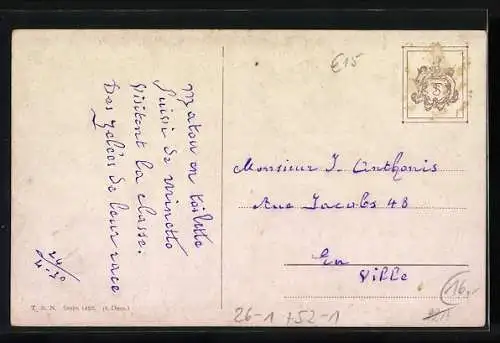 Matou en toilette
Suivi de minette
Visitent la classe.
Des zélées de leur race
24/4-20
T. S. N. Serie 1423. (6 Dess.)
€15
TSN
Monsieur J. Anthonis
Rue Jacobs 48
En
Ville
16,-
26-1 +52-1